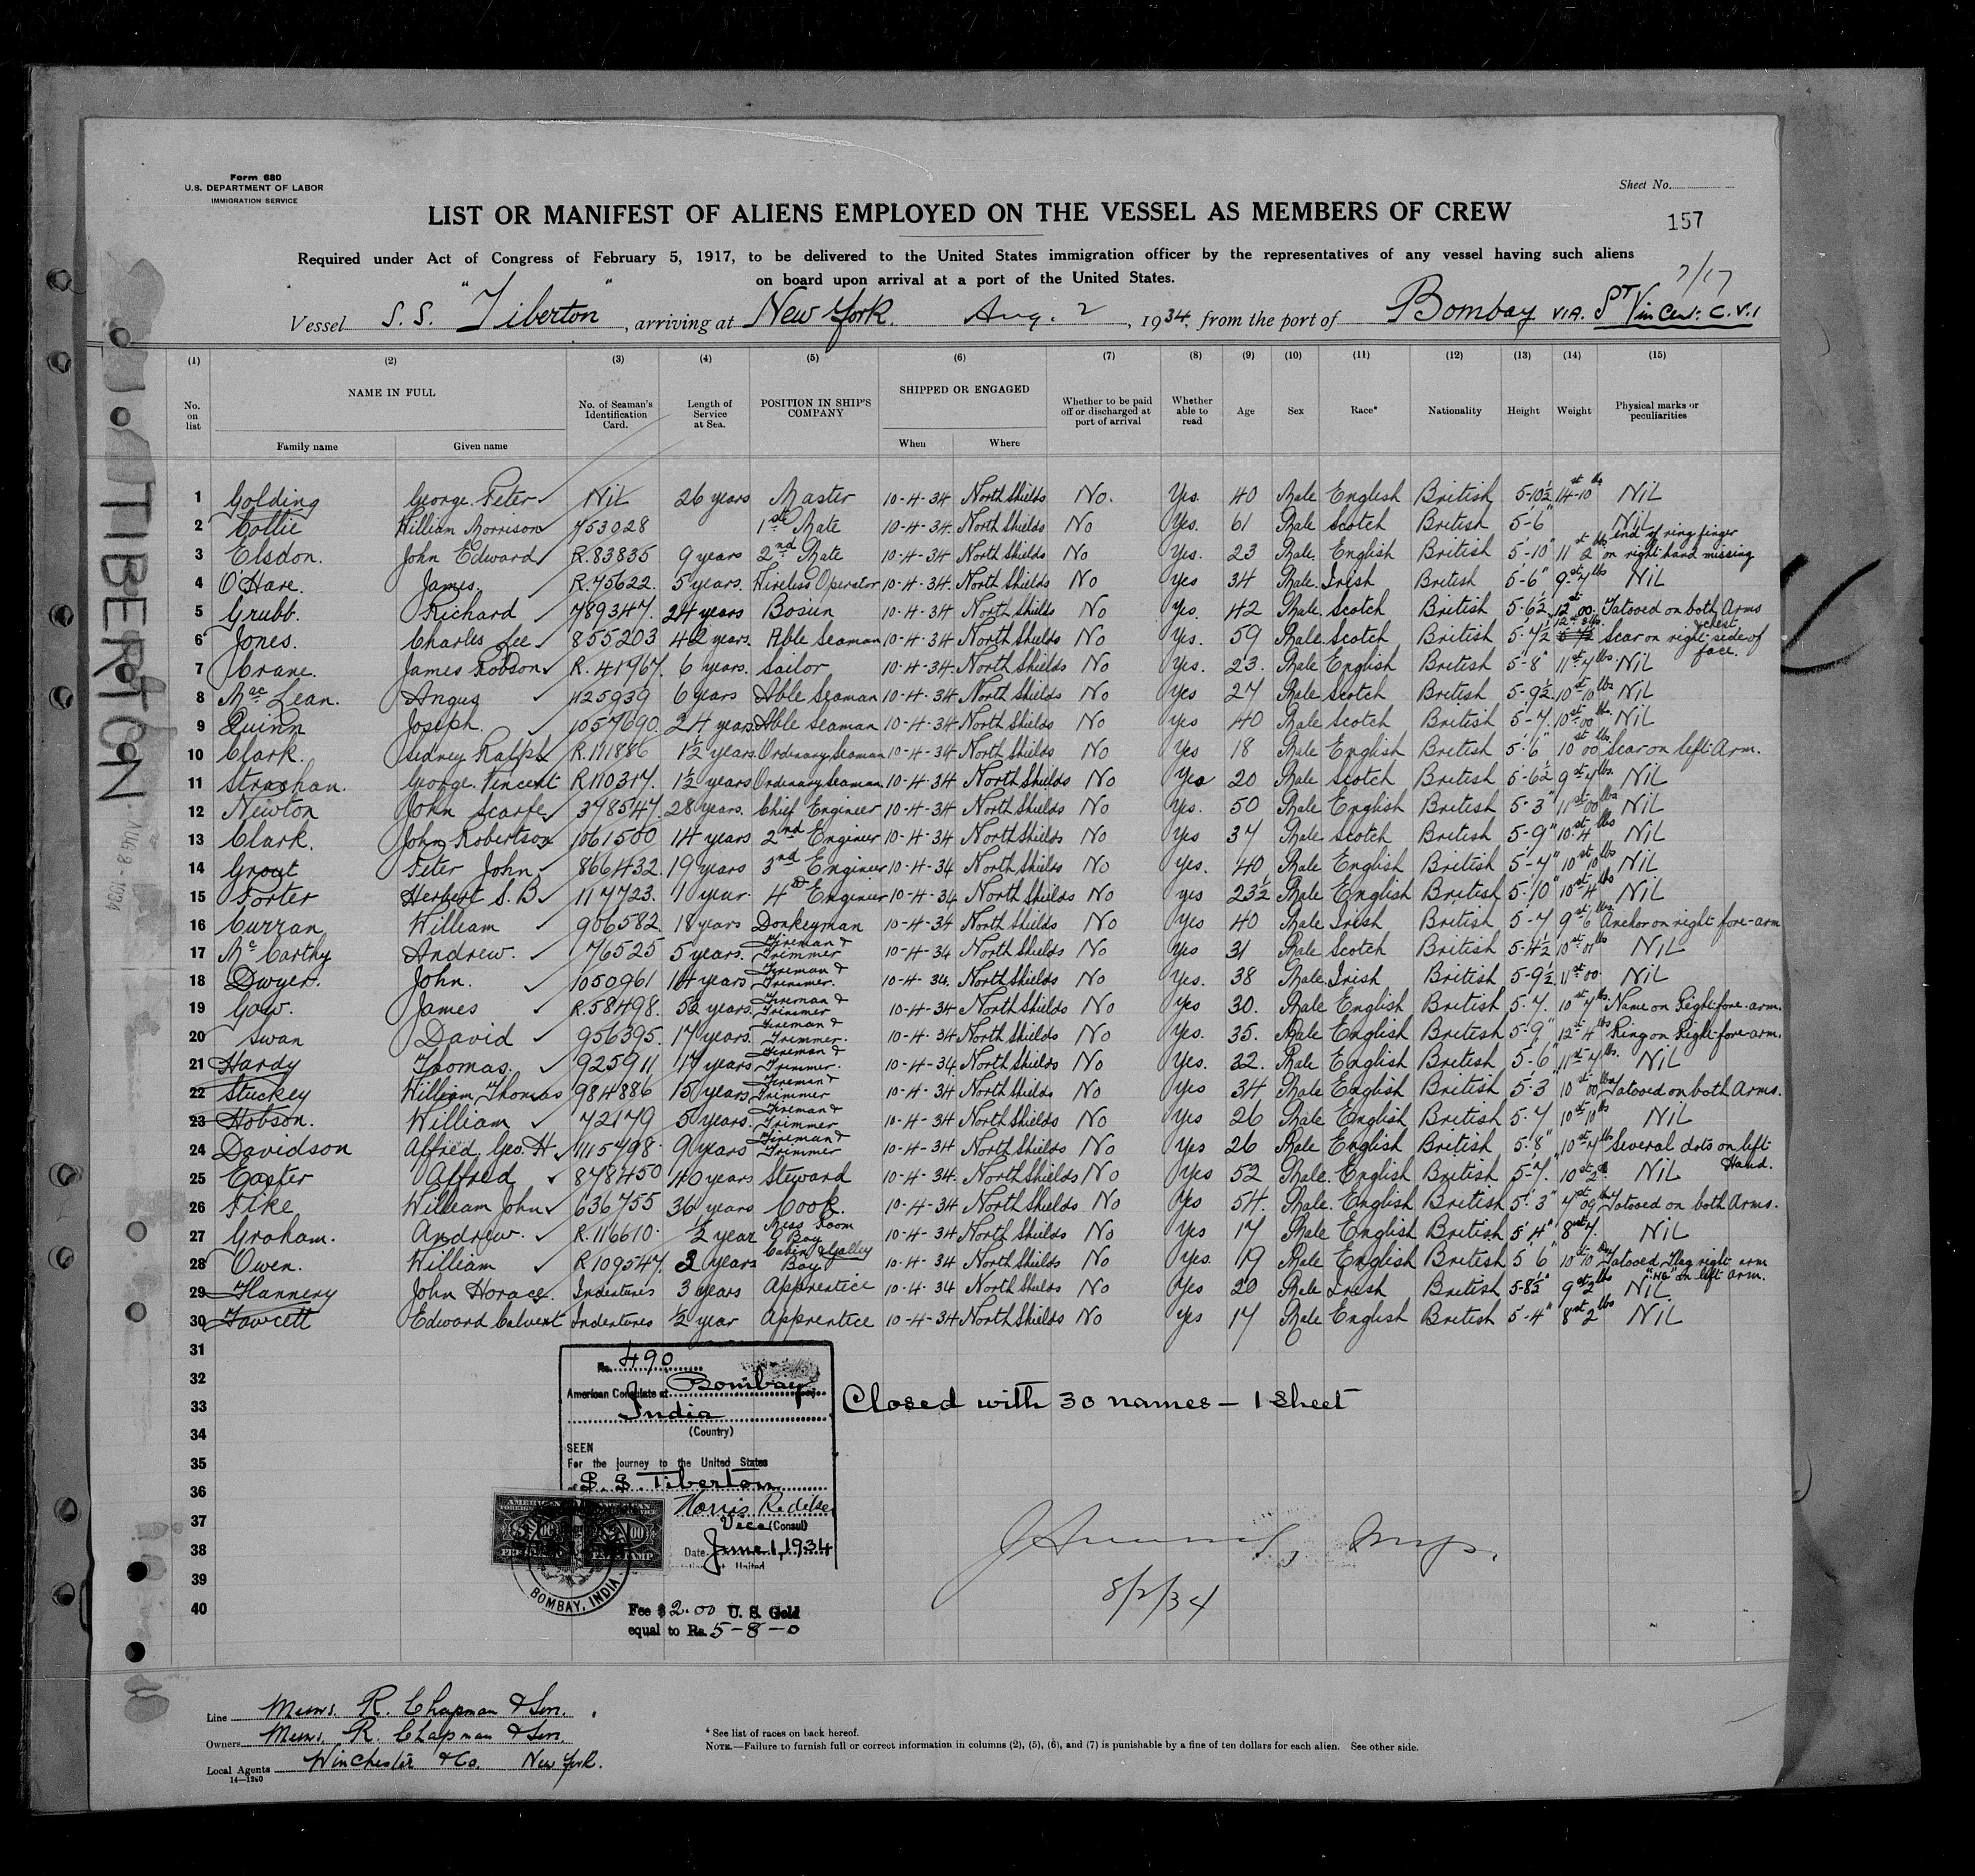 Form 680
U.S. DEPARTMENT OF LABOR
IMMIGRATION SERVICE
Sheet No.
157
LIST OR MANIFEST OF ALIENS EMPLOYED ON THE VESSEL AS MEMBERS OF CREW
Required under Act of Congress of February 5, 1917, to be delivered to the United States immigration officer by the representatives of any vessel having such aliens
on board upon arrival at a port of the United States.
7/17
Vessel S.S. "Tiberton", arriving at New York. Aug. 2, 1934, from the port of Bombay VIA. St Vincent. C.V.I
TIBERTON
AUG 8 - 1934
(1) (2) (3) (4) (5) (6) (7) (8) (9) (10) (11) (12) (13) (14) (15)
No. on list NAME IN FULL Family name Given name No. of Seaman's Identification Card. Length of Service at Sea. POSITION IN SHIP'S COMPANY SHIPPED OR ENGAGED When Where Whether to be paid off or discharged at port of arrival Whether able to read Age Sex Race* Nationality Height Weight Physical marks or peculiarities
1 Golding George. Peter Nil 26 years Master 10-4-34 North Shields No. Yes. 40 Male English British 5-10½ 14st-10lbs Nil
2 Collie William Morrison 753028 1st Mate 10-4-34. North Shields No Yes. 61 Male Scotch British 5-6" Nil
3 Elsdon. John Edward R.83835 9 years 2nd Mate 10-4-34 North Shields No Yes. 23 Male. English British 5-10" 11st 2lbs end of ring finger on right hand missing
4 O'Hare. James. R.75622. 5 years. Wireless Operator 10-4-34. North Shields No Yes 34 Male. Irish British 5-6" 9st-7lbs Nil
5 Grubb. Richard 789347. 24 years Bosun 10-4-34 North Shields No Yes. 42 Male Scotch British 5-6½ 12st 00. Tatooed on both Arms & chest
6 Jones. Charles Lee 855203 42 years. Able Seaman 10-4-34 North Shields No Yes. 59 Male Scotch British 5-7½ Scar on right side of face.
7 Crane. James Robson R.41967. 6 years. Sailor 10-4-34. North Shields No Yes. 23. Male English British 5-8" 11st-7lbs Nil
8 Mac Lean. Angus 1125939 6 years Able Seaman 10-4-34 North Shields No Yes 27 Male Scotch British 5-9½ 10st-10lbs Nil
9 Quinn Joseph. 1057690. 24 years. Able Seaman 10-4-34 North Shields No Yes 40 Male Scotch British 5-7. 10st-00lbs. Nil
10 Clark. Sidney Ralph R.111886 1½ years. Ordinary Seaman 10-4-34 North Shields No Yes 18 Male English British 5-6" 10st 00lbs Scar on left Arm.
11 Strachan. George. Vincent R110317. 1½ years Ordinary Seaman 10-4-34 North Shields No Yes 20 Male Scotch British 5-6½ 9st-7lbs. Nil
12 Newton John Scarfe 378547. 28 years. Chief Engineer 10-4-34 North Shields No Yes. 50 Male English British 5-3" 11st-00lbs Nil
13 Clark. John Robertson 1061500 14 years 2nd Enginer 10-4-34 North Shields No Yes 37 Male Scotch British 5-9" 10st-4lbs Nil
14 Grout Peter John 866432. 19 years 3rd Enginer 10-4-34 North Shields No Yes. 40 Male English British 5-7" 10st 10lbs Nil
15 Porter Herbert S. B. 117723. 1 year. 4th Enginer 10-4-34 North Shields No yes 23½ Male English British 5-10" 10st 4lbs Nil
16 Curran William 906582. 18 years Donkeyman 10-4-34 North Shields No Yes 40 Male Irish British 5-7 9st-6lbs Anchor on right fore-arm
17 Mc Carthy Andrew. 76525 5 years. Fireman & Trimmer 10-4-34 North Shields No Yes 31 Male Scotch British 5-4½ 10st-07lbs Nil
18 Dwyer. John. 1050961 14 years Fireman & Trimmer. 10-4-34. North Shields No Yes. 38 Male. Irish British 5-9½ 11st-00. Nil
19 Gow. James R.58498. 5½ years. Fireman & Trimmer 10-4-34 North Shields No Yes 30. Male English British 5-7. 10st-7lbs. Name on Right fore-arm.
20 Swan David 956395. 17 years. Fireman & Trimmer. 10-4-34 North Shields No Yes. 35. Male English British 5-9" 12st-4lbs Ring on Right fore-arm.
21 Hardy Thomas. 925911 17 years Fireman & Trimmer. 10-4-34. North Shields No Yes. 32. Male English British 5-6" 11st-7lbs. Nil
22 Stuckey William Thomas 984886 15 years Fireman & Trimmer 10-4-34 North Shields No Yes 34 Male English British 5-3 10st 00lbs Tatooed on both Arms.
23 Hobson. William 72179 5 years. Fireman & Trimmer 10-4-34 North Shields No Yes 26 Male English British 5-7 10st-10lbs Nil
24 Davidson Alfred. Geo. H. 1115798. 9 years Fireman & Trimmer 10-4-34 North Shields No Yes 26 Male English British 5-8" 10st-7lbs Several dots on left Hand.
25 Easter Alfred 878450 40 years Steward 10-4-34. North Shields No Yes 52 Male. English British. 5-7. 10st-2lb Nil
26 Pike William John 636755 36 years Cook. 10-4-34 North Shields No Yes 54. Male. English British 5-3" 7st 09lbs Tatooed on both Arms.
27 Graham. Andrew. R.116610. ½ year Mess Room Boy 10-4-34 North Shields No Yes 17 Male English British 5-4" 8st-7. Nil
28 Owen. William R109547. 2 years Cabin & Galley Boy. 10-4-34 North Shields No Yes. 19 Male English British 5 6 10st-10lbs Tatooed Flag right arm on left arm.
29 Flannery John Horace. Indentures 3 years Apprentice 10-4-34 North Shields No Yes 20 Male Irish British 5-8½" 9st-2lbs Nil.
30 Fawcett Edward Calvert Indentures ½ year Apprentice 10-4-34 North Shields No Yes 17 Male English British 5-4" 8st 2lbs Nil
31
32
33
34
35
36
37
38
39
40
No. 490
American Consulate at Bombay
India
(Country)
SEEN
For the journey to the United States
S.S. Tiberton
Vice (Consul)
Date June 1, 1934
BOMBAY, INDIA
Fee $2.00 U. S. Gold
equal to Rs. 5-8-0
Closed with 30 names - 1 sheet
8/2/34
Line Messrs. R. Chapman & Son.
Owners Messrs. R. Chapman & Son.
Local Agents Winchester & Co. New York.
14-1240
* See list of races on back hereof.
NOTE.—Failure to furnish full or correct information in columns (2), (5), (6), and (7) is punishable by a fine of ten dollars for each alien. See other side.